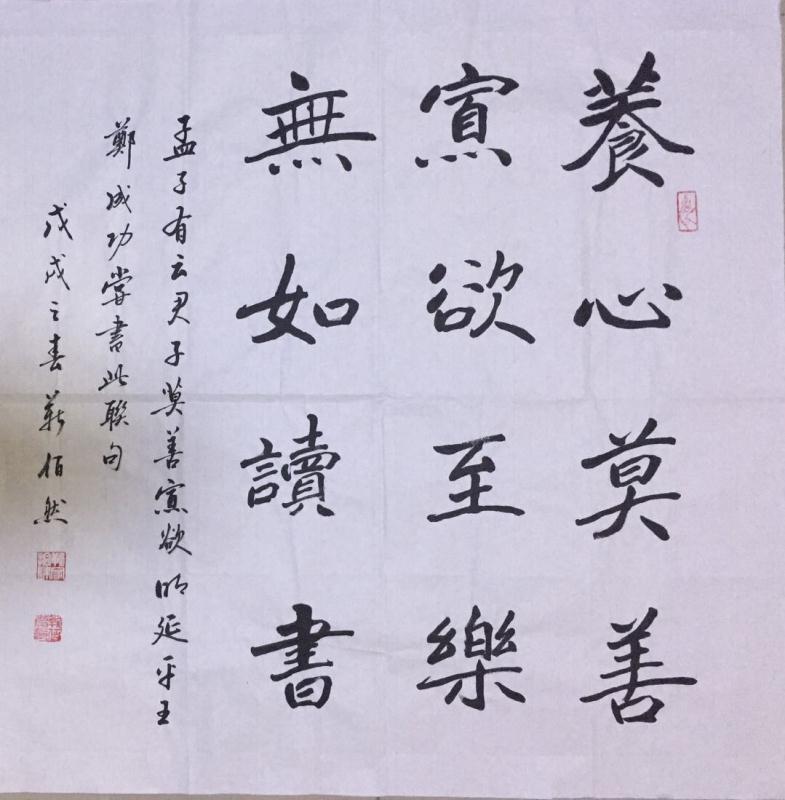 養心莫善
寡欲至樂
無如讀書
孟子有云君子莫善寡欲明延平王
鄭成功嘗書此聯句
戊戌之春靳佰然